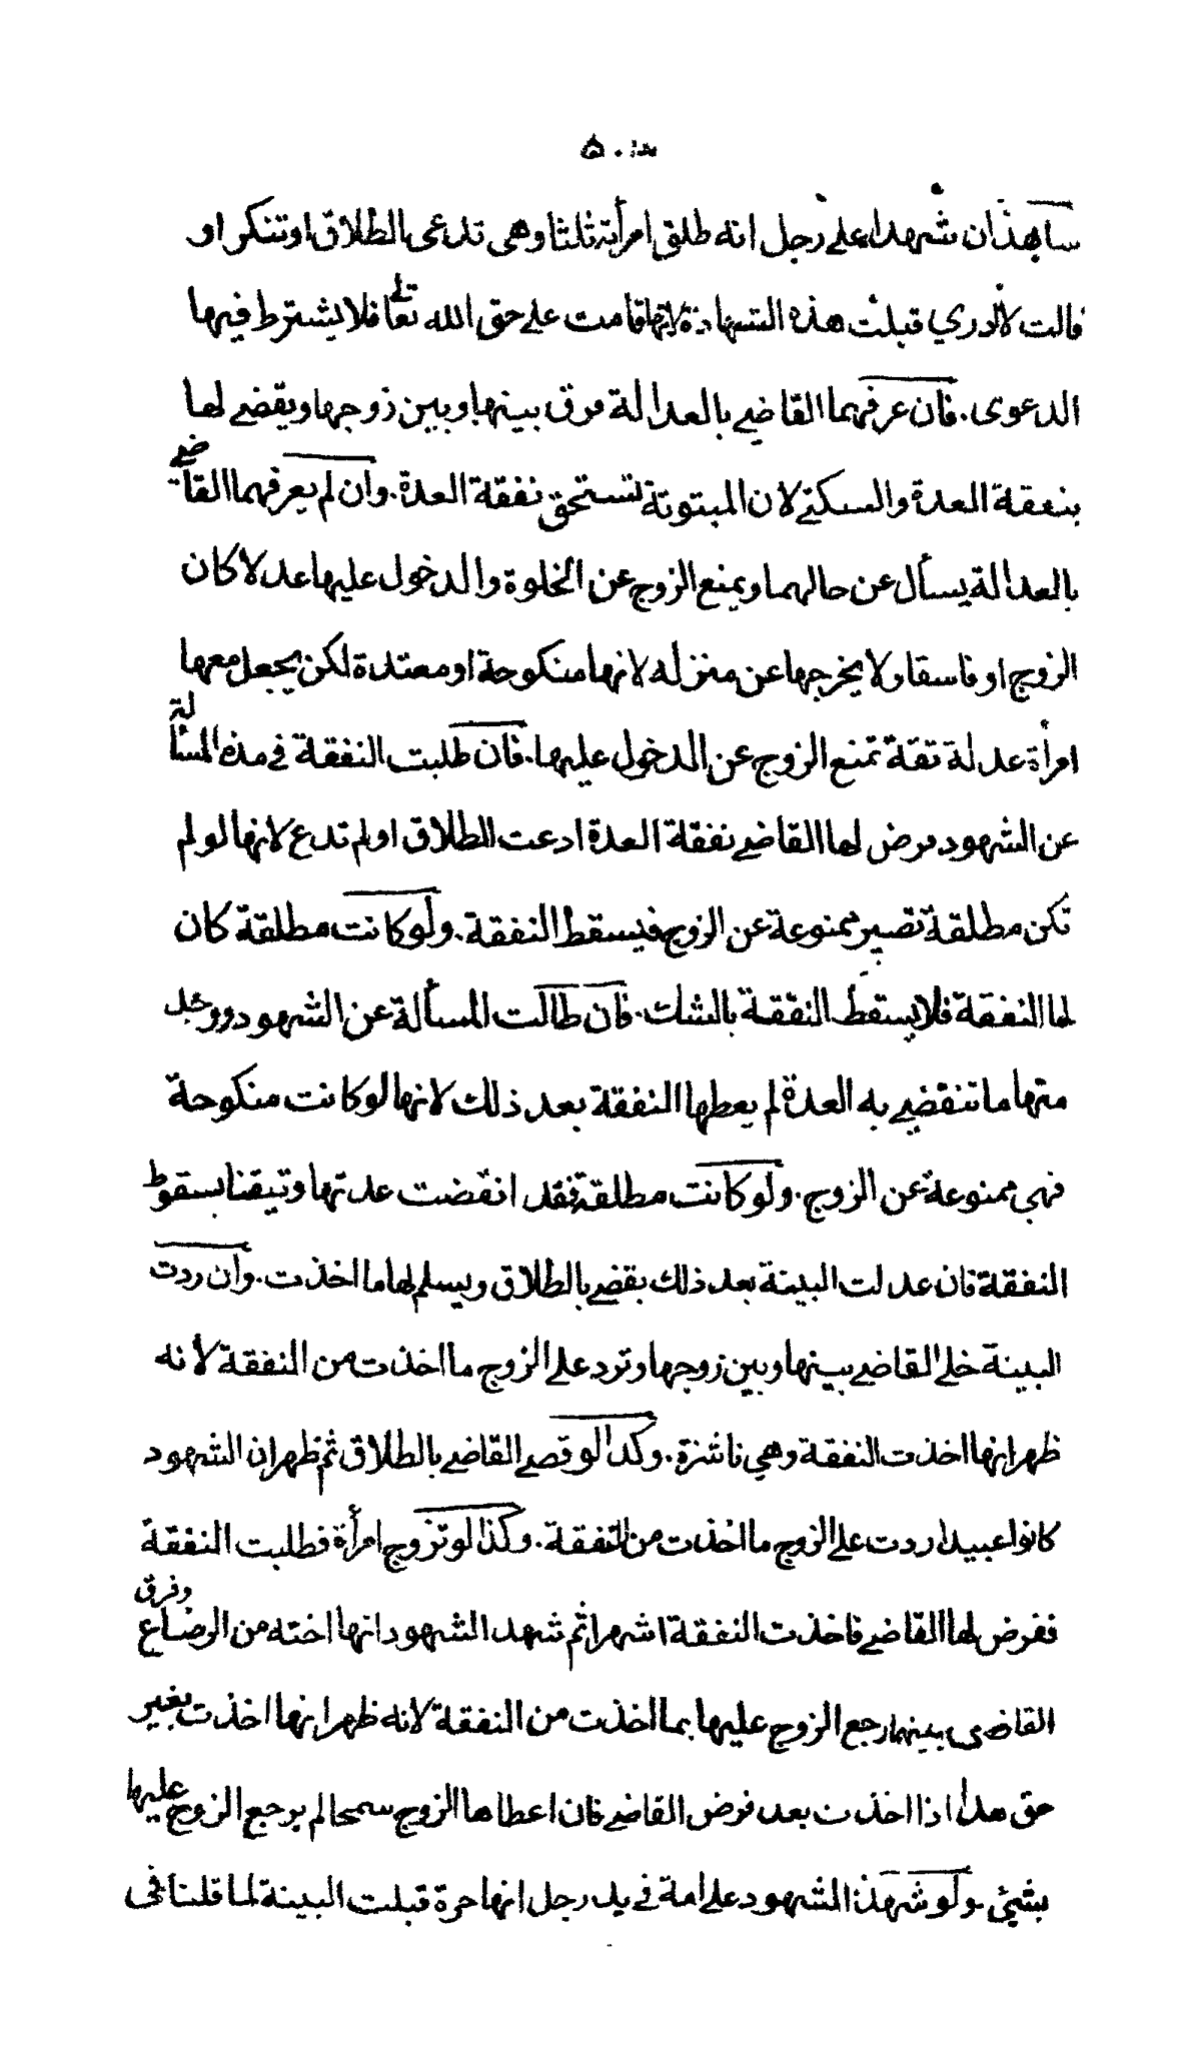 شاهدان شهدا على رجل انه طلق امرأته ثلثا وهى تدعى الطلاق او تنكر او
قالت لا ادري قبلت هذه الشهادة لانها قامت على حق الله تعالى فلا يشترط فيها
الدعوى. فان عرفهما القاضي بالعدالة فرق بينها وبين زوجها ويقضي لها
بنفقة العدة والسكنى لان المبتوتة تستحق نفقة العدة. وان لم يعرفهما القاضي
بالعدالة يسأل عن حالهما ويمنع الزوج عن الخلوة والدخول عليها عدلا كان
الزوج او فاسقا ولا يخرجها عن منزله لانها منكوحة او معتدة لكن يجعل معها
امرأة عدلة ثقة تمنع الزوج عن الدخول عليها. فان طلبت النفقة في هذه المسألة
عن الشهود فرض لها القاضي نفقة العدة ادعت الطلاق او لم تدع لانها لو لم
تكن مطلقة تصير ممنوعة عن الزوج فيسقط النفقة. ولو كانت مطلقة كان
لها النفقة فلا يسقط النفقة بالشك. فان طالت المسألة عن الشهود ووجد
منها ما تنقضي به العدة لم يعطها النفقة بعد ذلك لانها لو كانت منكوحة
فهي ممنوعة عن الزوج. ولو كانت مطلقة فقد انقضت عدتها وتيقنا بسقوط
النفقة فان عدلت البينة بعد ذلك يقضي بالطلاق ويسلم لها ما اخذت. وان ردت
البينة خلى القاضي بينها وبين زوجها وترد على الزوج ما اخذت من النفقة لانه
ظهر انها اخذت النفقة وهي ناشزة. وكذا لو قضى القاضي بالطلاق ثم ظهر ان الشهود
كانوا عبيدا ردت على الزوج ما اخذت من النفقة. وكذا لو تزوج امرأة فطلبت النفقة
ففرض لها القاضي فاخذت النفقة اشهرا ثم شهد الشهود انها اخته من الرضاع وفرق
القاضى بينهما رجع الزوج عليها بما اخذت من النفقة لانه ظهر انها اخذت بغير
حق هذا اذا اخذت بعد فرض القاضي فان اعطاها الزوج سمحا لم يرجع الزوج عليها
بشيئ. ولو شهد الشهود على امة في يد رجل انها حرة قبلت البينة لما قلنا فى